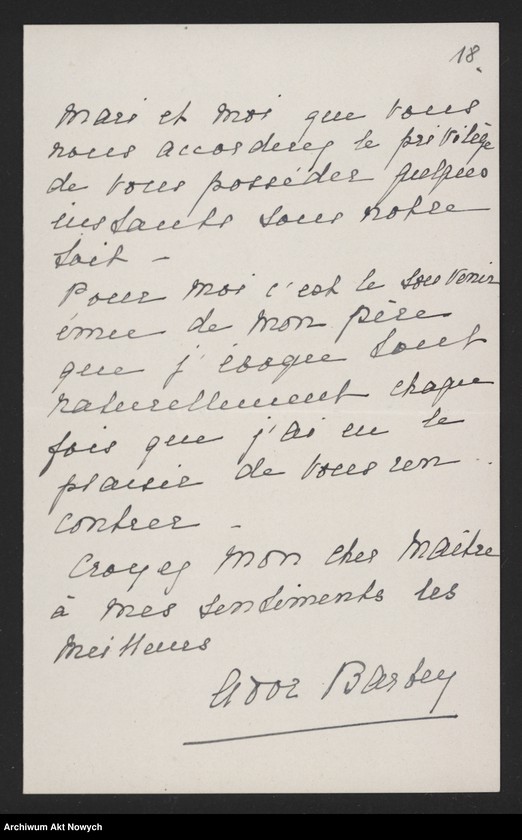 18.
mari et moi que vous
nous accordiez le privilège
de vous posséder quelques
instants sous notre
toit -
Pour moi c'est le souvenir
émue de mon père
que j'évoque tout
naturellement chaque
fois que j'ai eu le
plaisir de vous ren
contrer -
Croyez mon cher Maître
à mes sentiments les
meilleurs
Ador Barbey
Archiwum Akt Nowych